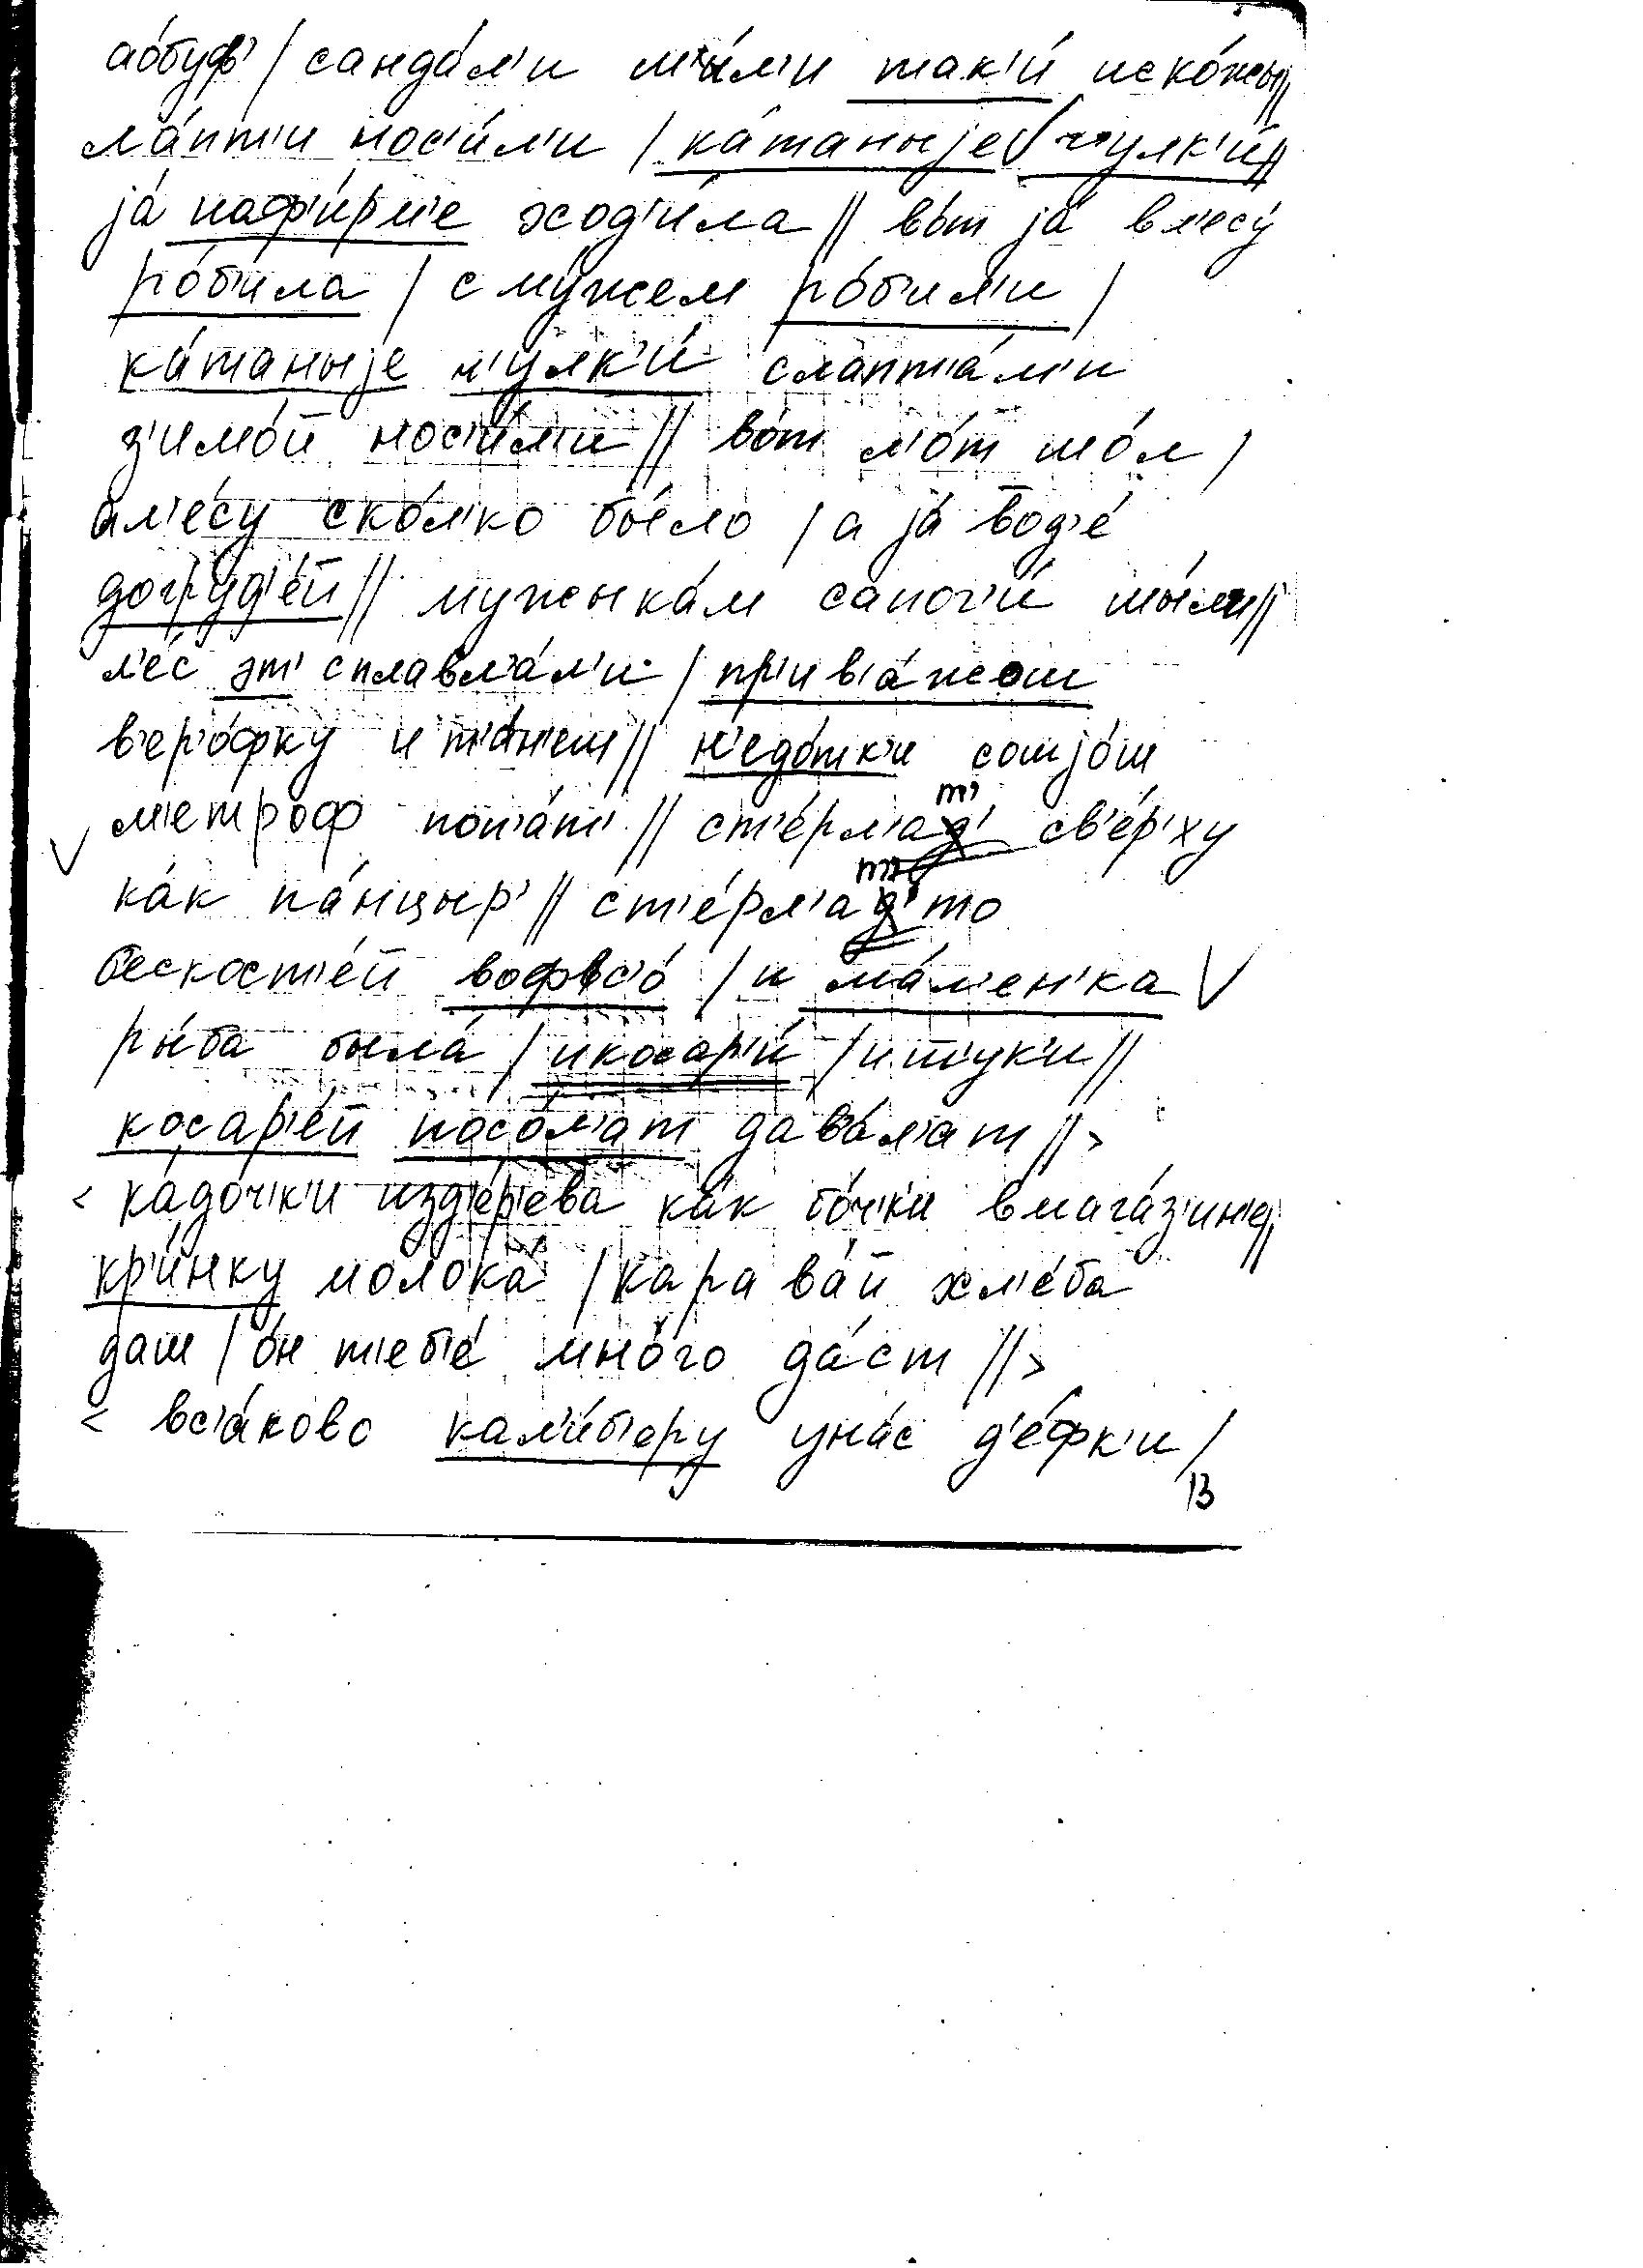 ао́буф' / санда́л'и ш'ы́л'и так'и́ иско́жы //
ла́пт'и нос'и́л'и / ка́таныjе ч'улк'и́ //
jа́ наф'и́рм'е ход'и́ла // во́т jа́ вл'есу́
ро́б'ила / сму́жем ро́б'ил'и /
ка́таныjе ч'улк'и́ слапт'а́м'и
з'имо́й нос'и́л'и // во́т л'о́т шо́л /
ал'е́су ско́л'ко бы́ло / а jа́ вод'е́
догруд'е́й // мужыка́м сапог'и́ шы́ли //
л'е́с эт' сплавл'а́л'и / пр'ив'а́жош
в'ер'о́фку и т'а́н'еш // н'едо́тк'и сошjо́ш
м'етроф пот'а́т' // ст'е́рл'ат' св'е́рху
ка́к па́нцыр' // ст'е́рл'ат' то
бескост'е́й вофвс'о́ / и ма́л'ен'ка
ры́ба была́ / икосар'и́ / ищ'ук'и //
косар'е́й насо́л'ат дава́л'ат // >
< ка́доч'к'и изд'е́р'ева ка́к бо́ч'к'и вмага́з'ин'е //
кр'и́нку молока́ / карава́й хл'е́ба
даш / о́н т'еб'е́ мно́го да́ст // >
< вс'а́ково кал'и́б'еру уна́с д'е́фк'и /
13